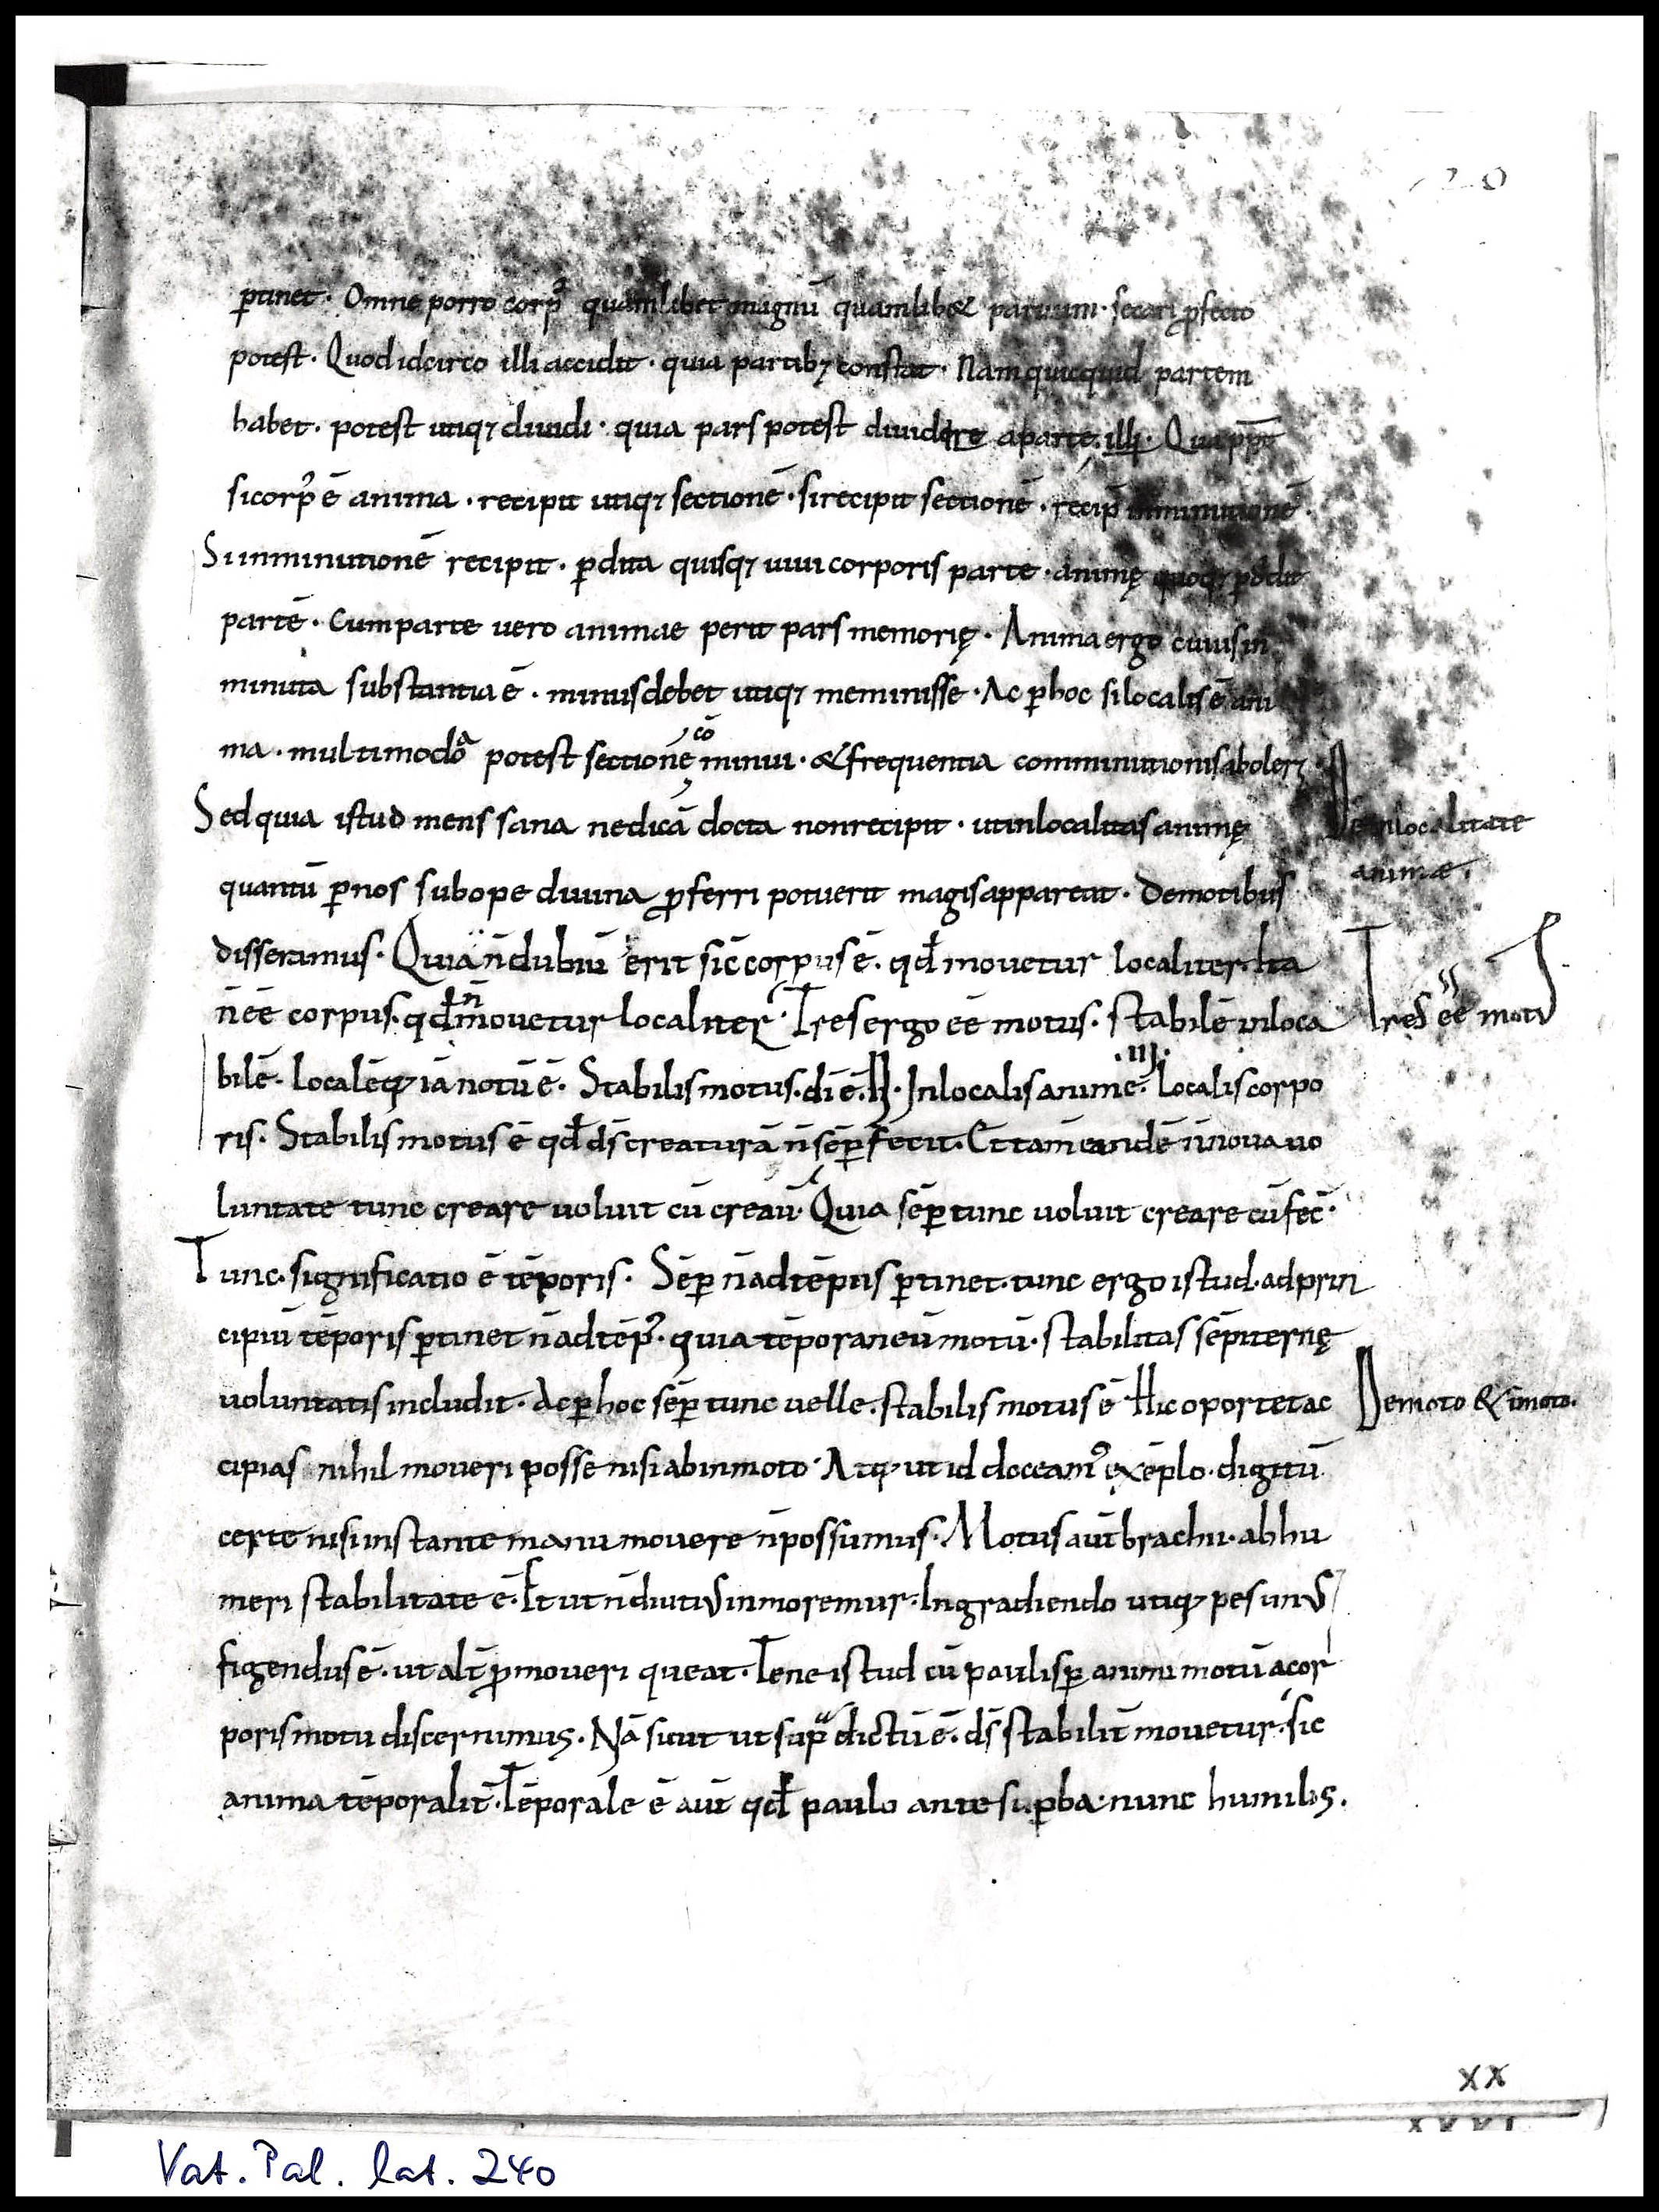 20
ꝑtinet · Omne porro corpꝰ quamlibet magnū quamlib& paruum · secari ꝓfecto
potest · Quod idcirco illi accidit · quia partibꝫ constat · Nam quicquid partem
habet · potest utiqꝫ diuidi · quia pars potest diuidere aparte illi · Quappt̄
sicorpꝰ ē anima · recipit utiqꝫ sectionē · sirecipit sectionē · recip̄ inminutionē ·
Siinminutionē recipit · ꝑdita quisqꝫ uiui corporis parte · animę quoqꝫ ꝑdit
partē · Cumparte vero animae perit pars memorię · Anima ergo cuius in
minuta substantia ē · minus debet utiqꝫ meminisse · Ac ꝑhoc silocalis ē ani
ma · multimodo a potest sectione cō minui · & frequentia comminutionis abolerꝫ
Sed quia istud mens sana nedicā docta nonrecipit · utinlocalitas animę
De inlocalitate
quantū ꝑnos subope diuina ꝓferri potuerit magisappareat · Demotibus
animæ ·
disseramus · Quia n̄dubiū erit sic̄ corpus ē · qđ mouetur localiter · Ita
n̄ eē corpus · qđ n̄ mouetur localiter · Tres ergo eē motus · stabilē inloca
Tres eē motꝰ
bilē · localēqꝫ iānotū ē · Stabilis motus · di ē · II · Inlocalis anime · III · localis corpo
ris · Stabilis motus ē qđ ds̄ creaturā n̄ sēꝑ fecit · Et tam̄ eandē n̄noua uo
luntate tunc creare uoluit cū creau̅ · Quia sēꝑ tunc uoluit creare cū fec̄ ·
Tunc · significatio ē tēporis · Sēꝑ n̄adtēpus ꝑtinet · tunc ergo istud · adprin
cipiū tēporis ꝑtinet n̄adtēpꝰ · quia tēporaneū motū · stabilitas sēpiternę
uoluntatis includit · Ac ꝑhoc sēꝑ tunc uelle · stabilis motus ē · Hic oportet ac
Demoto & īmoto ·
cipias nihil moueri posse nisi abinmoto · Atqꝫ ut id doceamꝰ exēplo · digitū
certe nisi instante manu mouere n̄possumus · Motus aut̄ brachii · abhu
meri stabilitate ē · Et ut n̄diutiꝰ inmoremur · Ingradiendo utiqꝫ pes unꝰ
figendus ē · ut alt̄ ꝓmoueri queat · Tene istud cū paulisꝑ animi motū acor
poris motu discernimus · Nā sicut ut supͣ dictū ē · ds̄ stabilit̄ mouetur · sic
anima tēporalit̄ · Tēporale ē aut̄ qđ paulo ante suꝑba · nunc humilis ·
XX
Vat. Pal. lat. 240